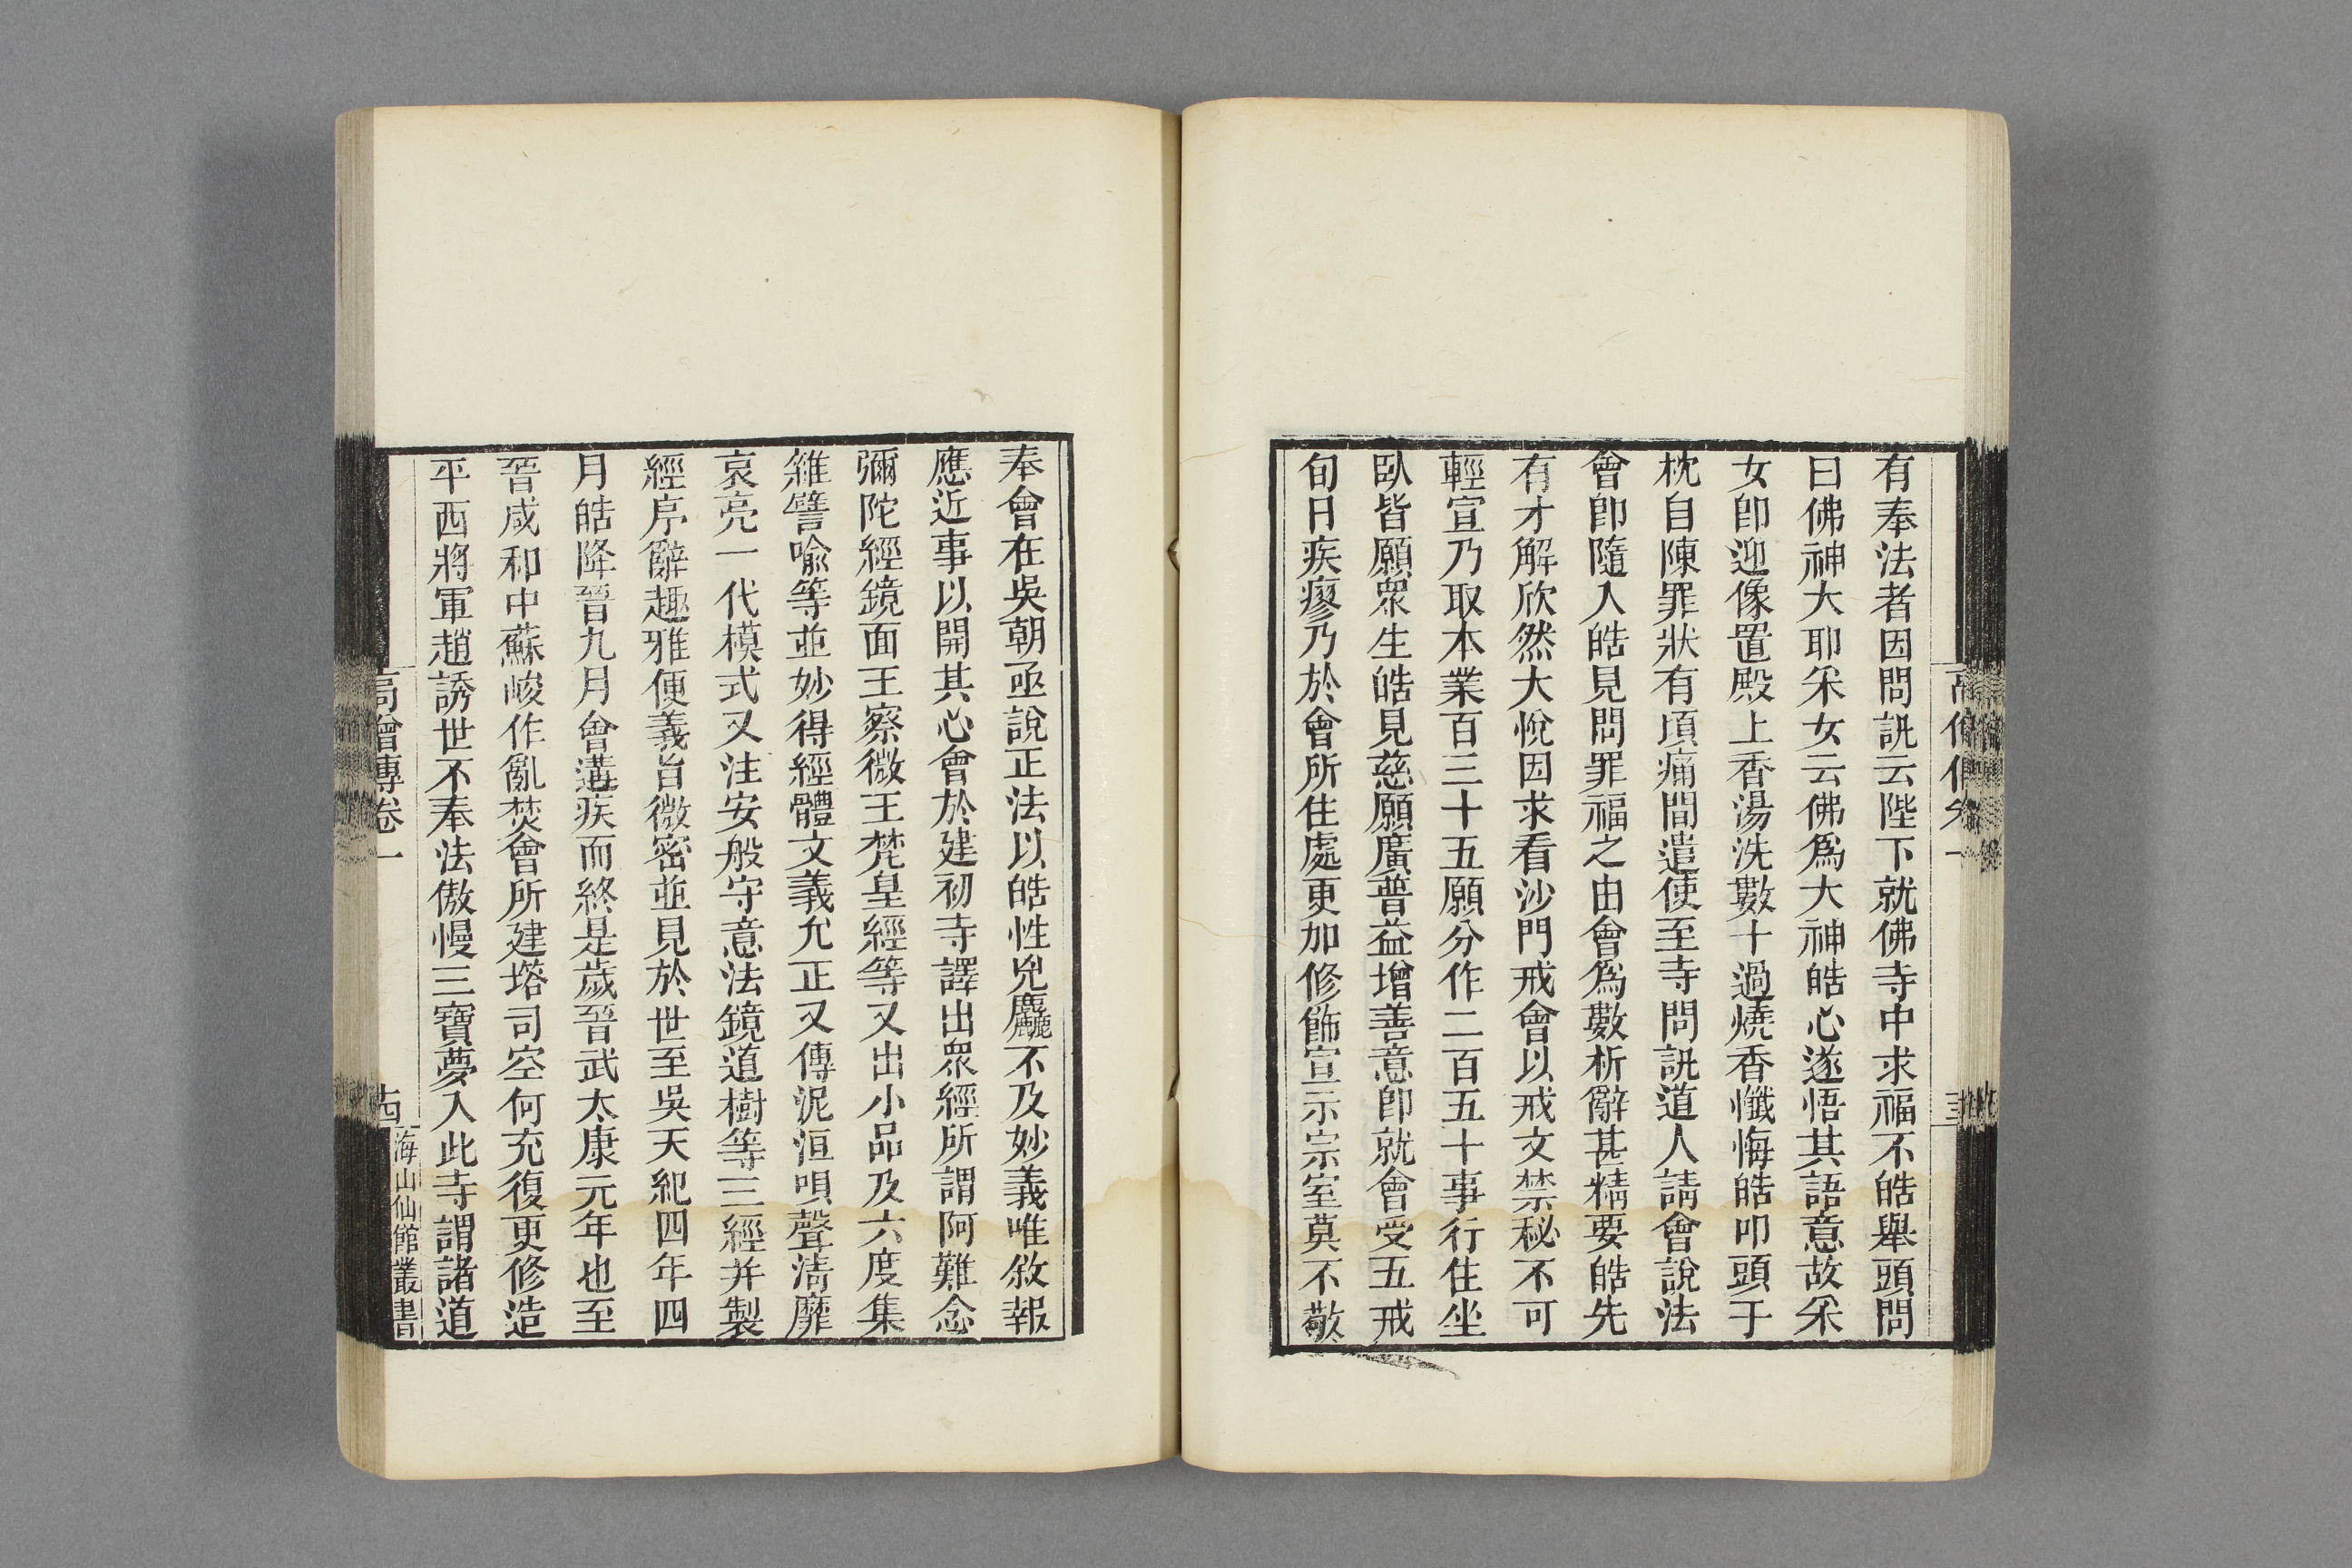 有奉法者因問訊云陛下就佛寺中求福不皓舉頭問
曰佛神大耶采女云佛爲大神皓心遂悟其語意故采
女卽迎像置殿上香湯洗數十過燒香懺悔皓叩頭于
枕自陳罪狀有頃痛間遣使至寺問訊道人請會說法
會卽隨入皓見問罪福之由會爲數析辭甚精要皓先
有才解欣然大悅因求看沙門戒會以戒文禁秘不可
輕宣乃取本業百三十五願分作二百五十事行住坐
臥皆願眾生皓見慈願廣普益增善意卽就會受五戒
旬日疾瘳乃於會所住處更加修飾宣示宗室莫不敬
奉會在吳朝亟說正法以皓性兇麤不及妙義唯敘報
應近事以開其心會於建初寺譯出眾經所謂阿難念
彌陀經鏡面王察微王梵皇經等又出小品及六度集
雜譬喻等並妙得經體文義允正又傳泥洹唄聲清靡
哀亮一代模式又注安般守意法鏡道樹等三經并製
經序辭趣雅便義旨微密並見於世至吳天紀四年四
月皓降晉九月會遘疾而終是歲晉武太康元年也至
晉咸和中蘇峻作亂焚會所建塔司空何充復更修造
平西將軍趙誘世不奉法傲慢三寶夢入此寺謂諸道
高僧傳卷一
十四
海山仙館叢書